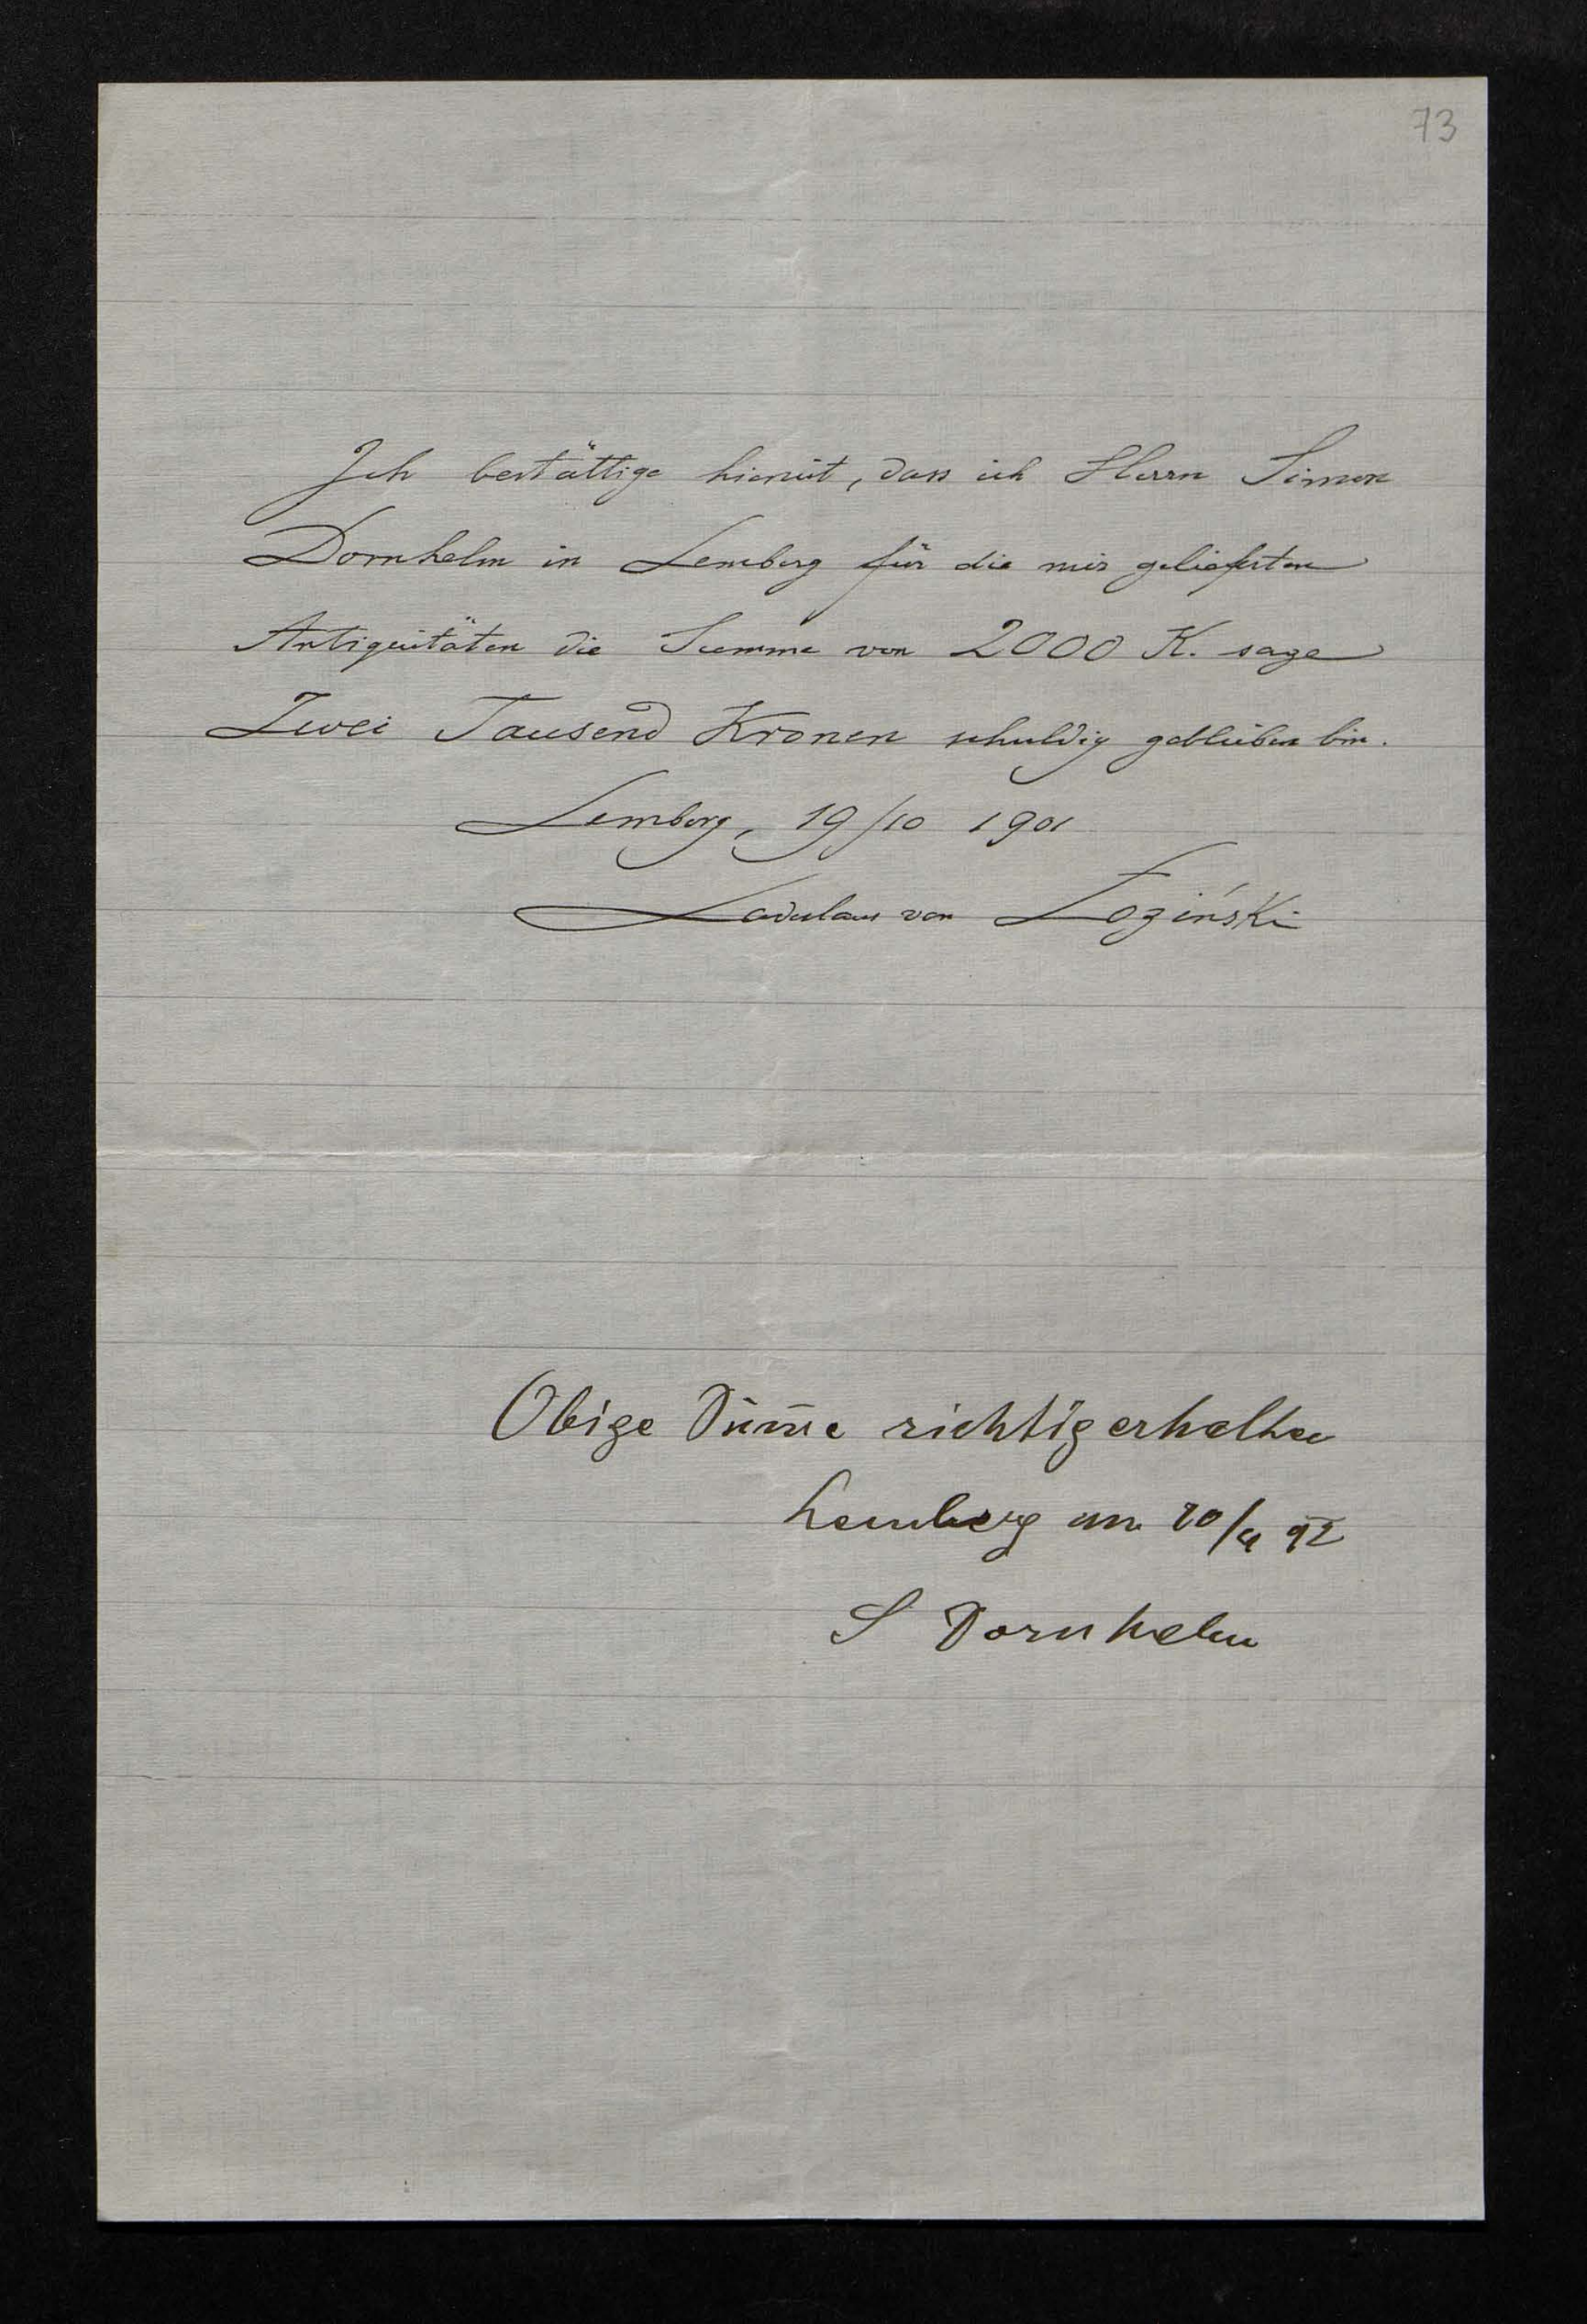 73
Ich bestättige hiemit, dass ich Herrn Simon
Dornhelm in Lemberg für die mir gelieferten
Antiquitäten die Summe von 2000 K. sage
Zwei Tausend Kronen schuldig geblieben bin.
Lemberg, 19/10 1901
Ladislaus von Łoziński
Obige Sum̄e richtig erhalten
Lemberg am
S Dornhelm